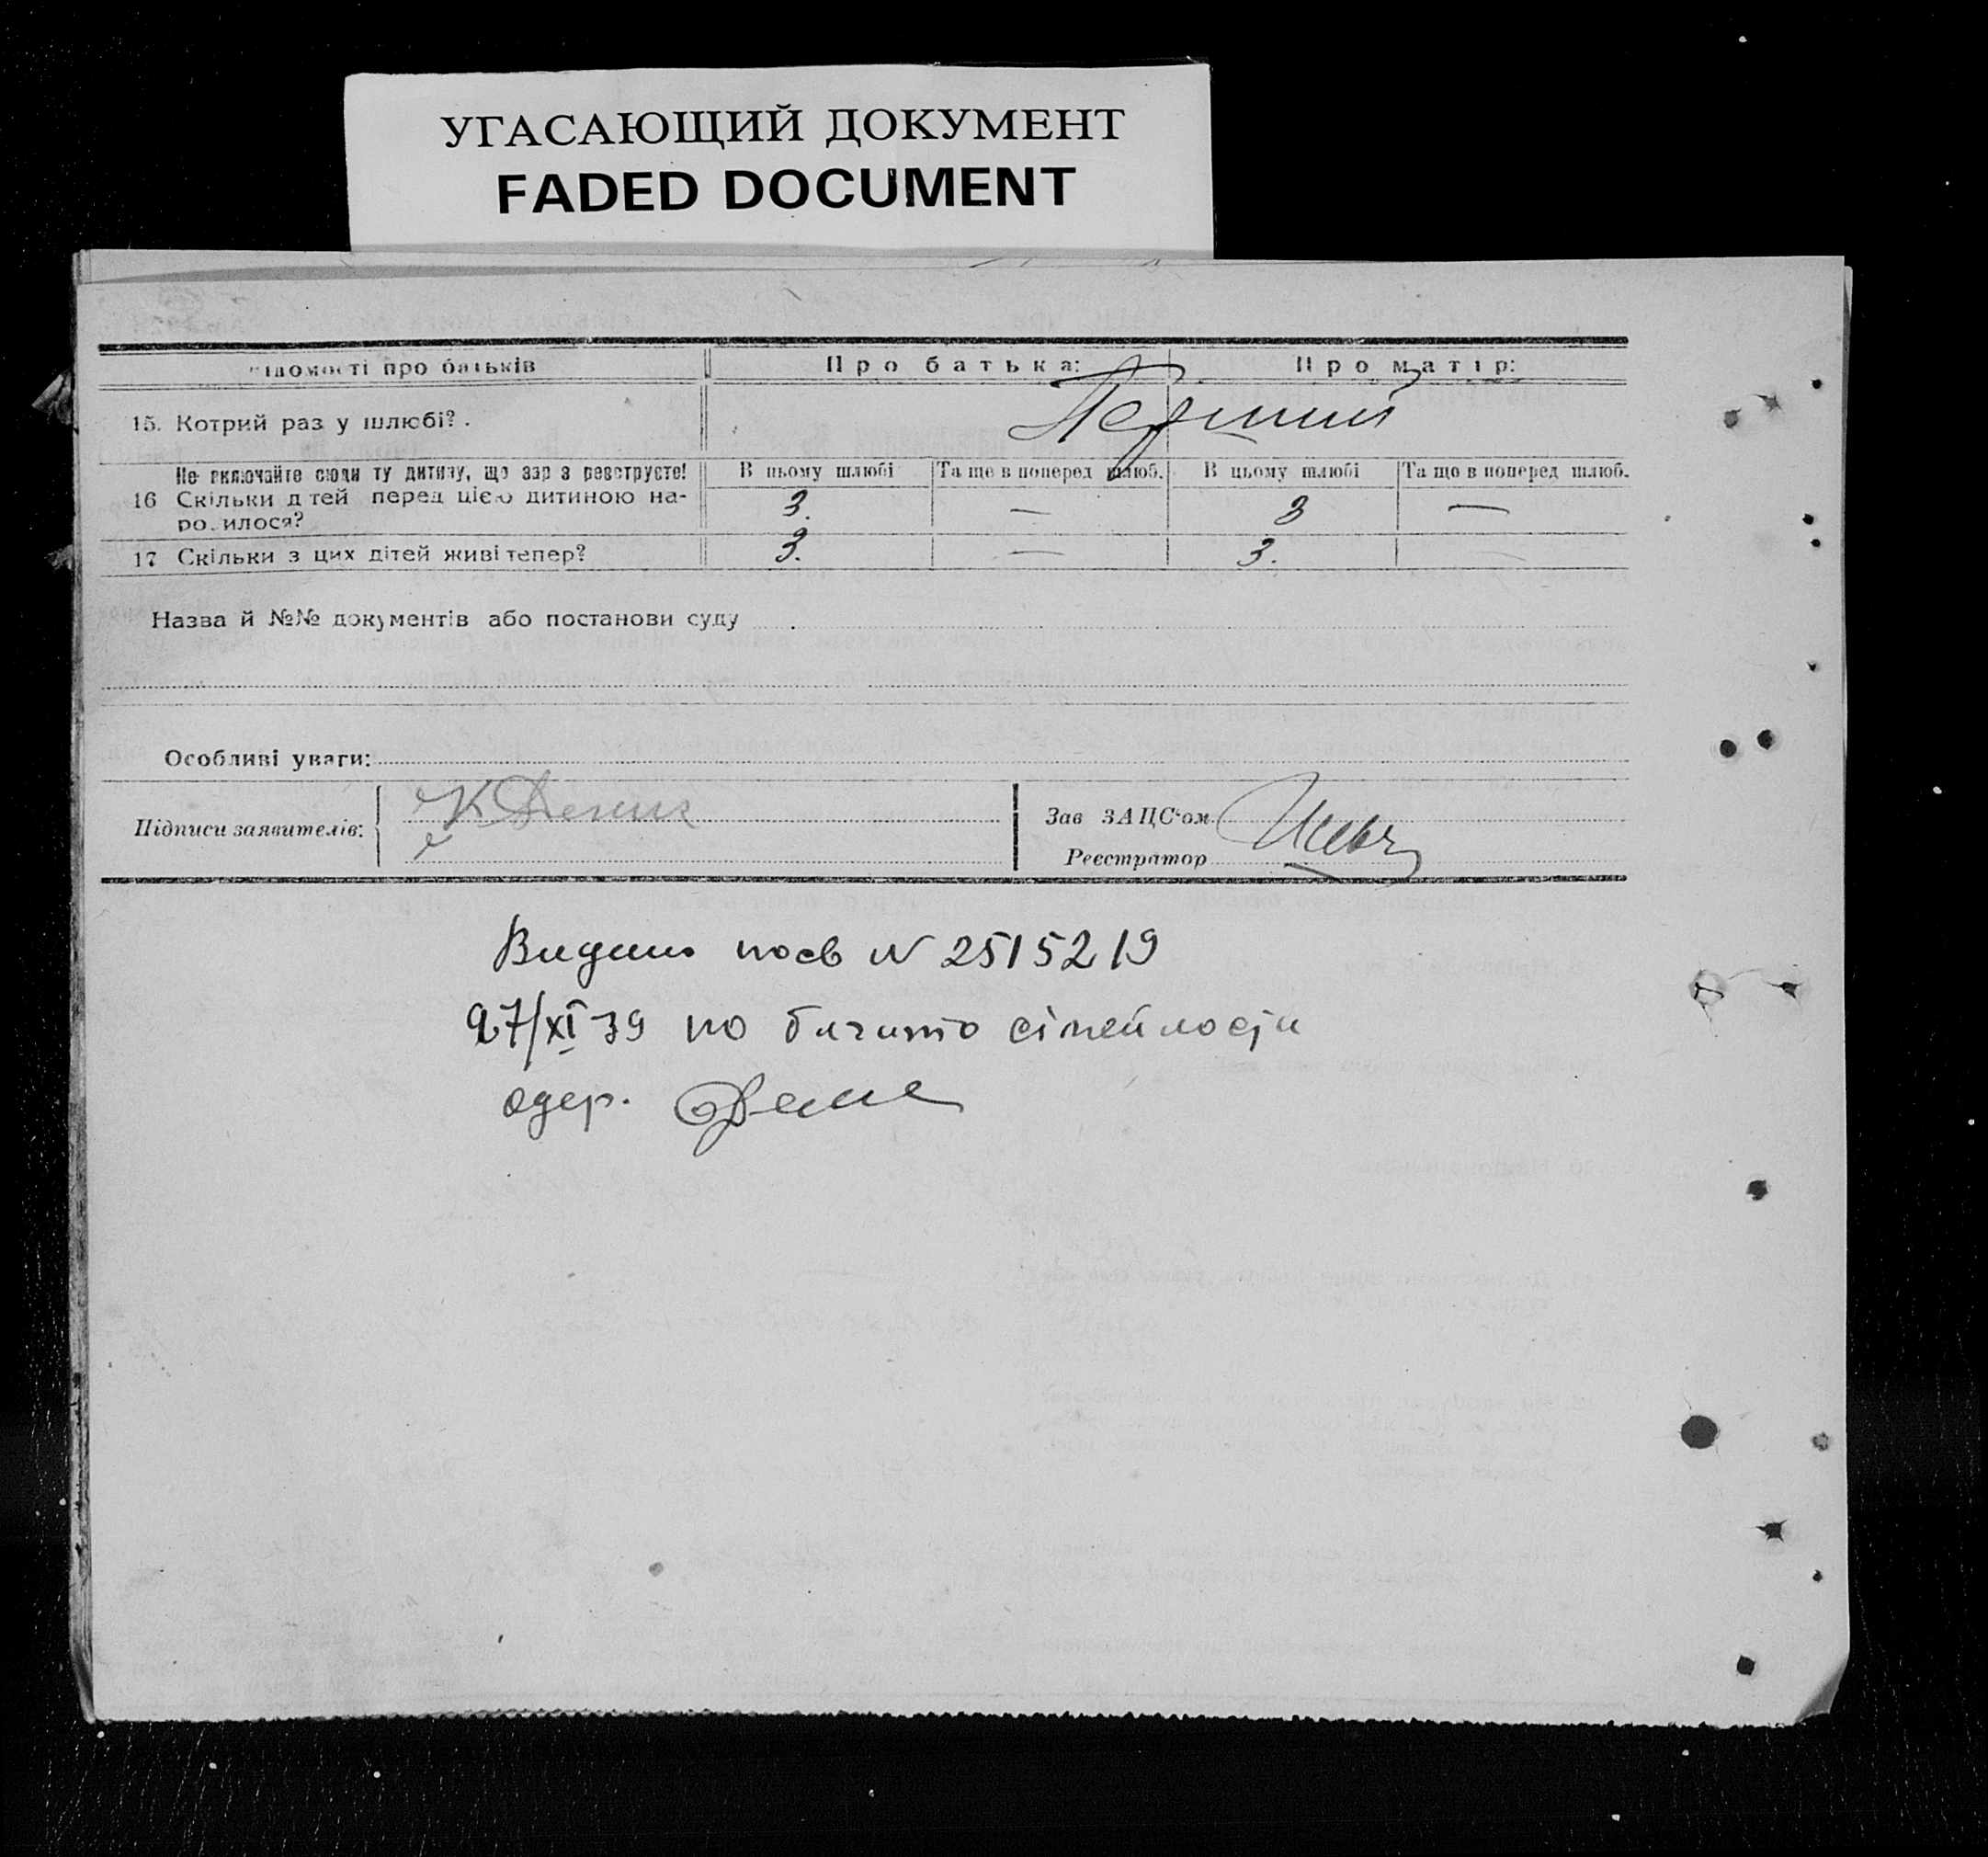 УГАСАЮЩИЙ ДОКУМЕНТ
FADED DOCUMENT
ідомості про батьків Про батька: Про матір:
15. Котрий раз у шлюбі? . Перший
Не включайте сюди ту дитину, що зар з реєструєте! В цьому шлюбі Та ще в поперед шлюб. В цьому шлюбі Та ще в поперед шлюб.
16 Скільки д тей перед цією дитиною на-
ро. илося? 3. — 3 —
17 Скільки з цих дітей живі тепер? 3. — 3.
Назва й №№ документів або постанови суду
Особливі уваги:
Підписи заявителів: Зав ЗАЦС'ом
Реєстратор
Видано посв N 2515219
27/XI 39 по багато сімейности
одер.